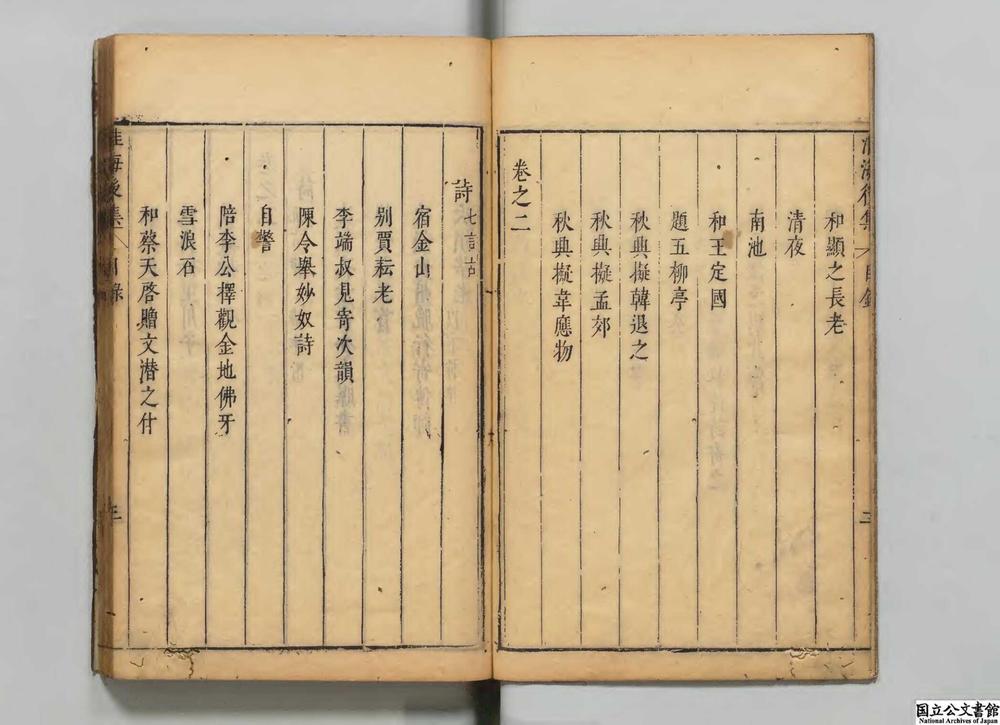 和顯之長老
清夜
南池
和王定國
題五柳亭
秋興擬韓退之
秋興擬孟郊
秋興擬韋應物
卷之二
淮海後集
目錄
二
詩七言古
宿金山
别賈耘老
李端叔見寄次韻
陳令舉妙奴詩
自警
陪李公擇觀金地佛牙
雪浪石
和蔡天啓贈文潜之什
淮海後集
目錄
三
国立公文書館
National Archives of Japan